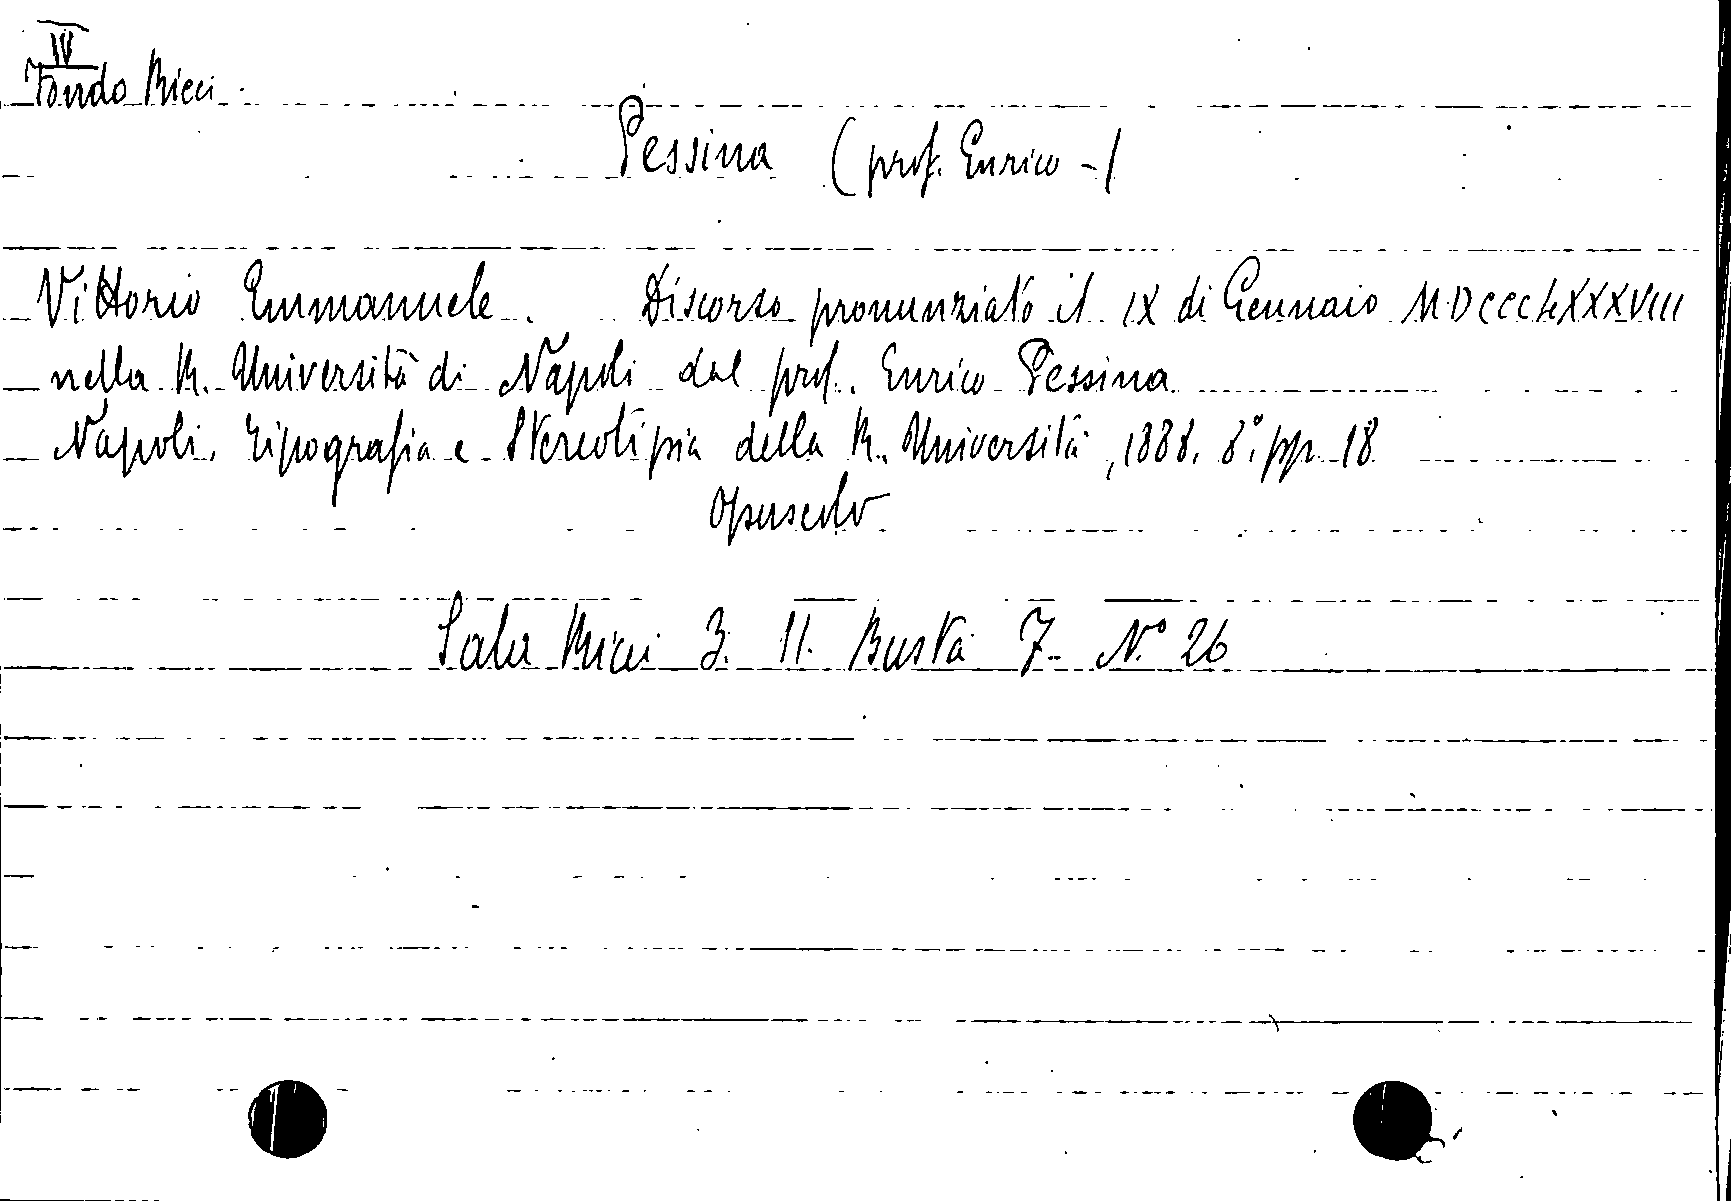 IV
Fondo Ricci
Pessina (prof. Enrico -)
Vittorio Emmanuele. Discorso pronunziato il IX di Gennaio MDCCCLXXXVIII
nella R. Università di Napoli dal prof. Enrico Pessina
Napoli, Tipografia e Stereotipia della R. Università, 1888. 8°. pp. 18
Opuscolo
Sala Ricci 3. 11. Busta 7. N.° 26